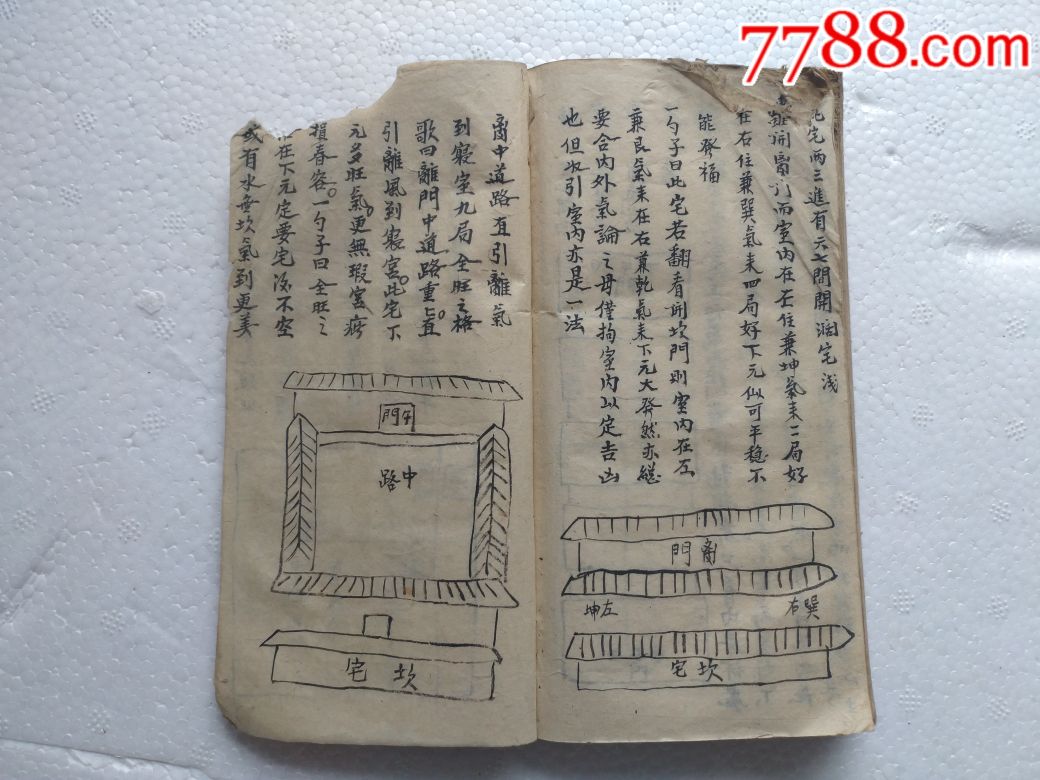 7788.com
宅兩三進有六七間開濶宅淺
開离門而室內在左住兼坤氣來二局好
在右住兼巽氣來四局好下元似可平穩不
能發福
一勺子曰此宅若翻看開坎門則室內在左
兼艮氣來在右兼乾氣來下元大發然亦總
要合內外氣論之毋僅拘室內以定吉凶
也但收引室內亦是一法
門离
坤左
右巽
宅坎
离中道路直引離氣
到寢室九局全旺之格
歌曰離門中道路重上直
引離風到寢宮此宅下
元多旺氣更無瑕宮疾
損春容一勺子曰全旺之
在下元定要宅深不空
或有水無坎氣到更美
門午
路中
宅坎